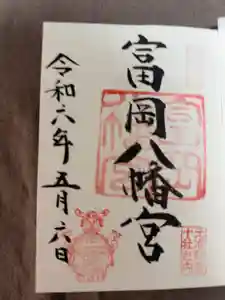 富岡八幡宮
令和六年五月六日